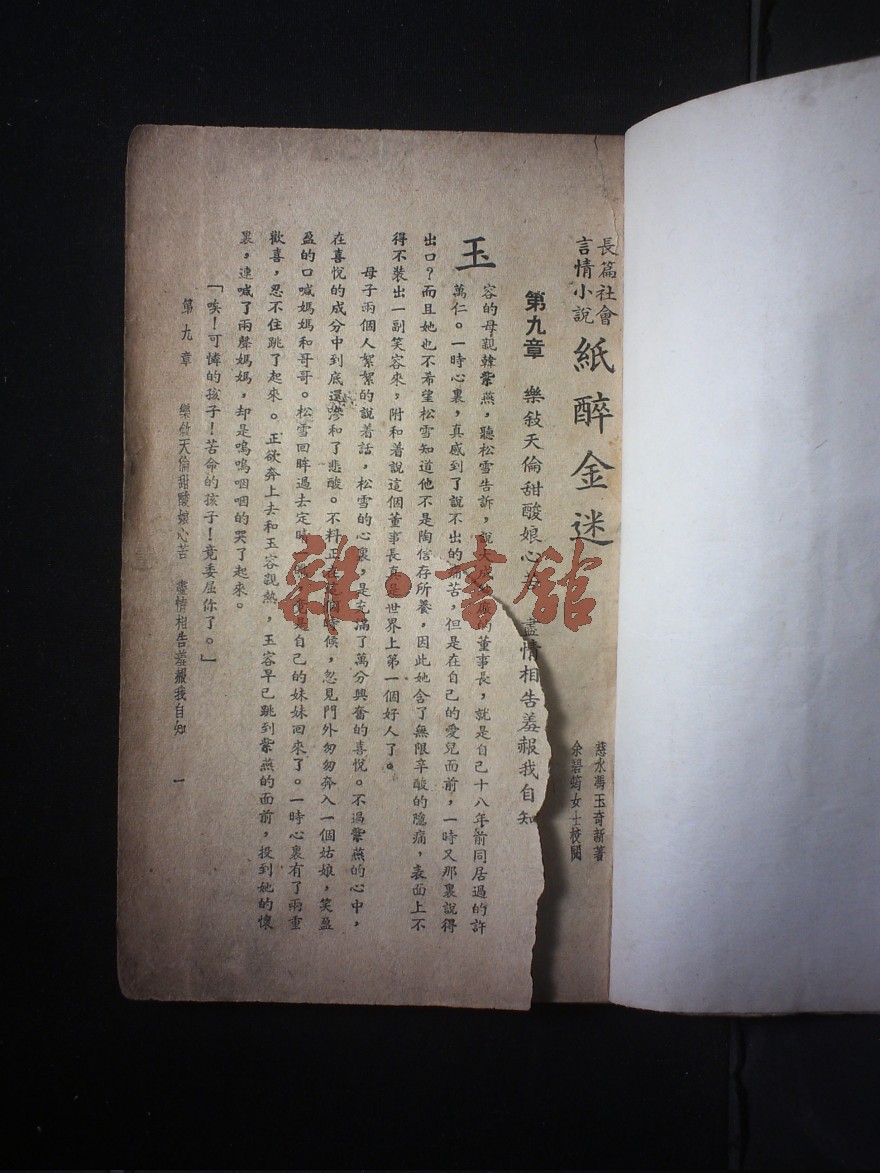 長篇社會
言情小說
紙醉金迷
慈水馮玉奇新著
余碧菊女士校閱
第九章 樂敍天倫甜酸娘心苦 盡情相告羞報我自知
玉容的母親韓紫燕,聽松雪告訴,說大成的董事長,就是自己十八年前同居過的許
萬仁。一時心裏,真感到了說不出的痛苦,但是在自己的愛兒面前,一時又那裏說得
出口?而且她也不希望松雪知道他不是陶信存所養,因此她含了無限辛酸的隱痛,表面上不
得不裝出一副笑容來,附和着說這個董事長真是世界上第一個好人了。
母子兩個人絮絮的說着話,松雪的心裏,是充滿了萬分興奮的喜悅。不過紫燕的心中,
在喜悅的成分中到底還滲和了悲酸。不料正在這個時候,忽見門外匆匆奔入一個姑娘,笑盈
盈的口喊媽媽和哥哥。松雪回眸過去定睛一瞧,竟是自己的妹妹回來了。一時心裏有了兩重
歡喜,忍不住跳了起來。正欲奔上去和玉容親熱,玉容早已跳到紫燕的面前,投到她的懷
裏,連喊了兩聲媽媽,却是嗚嗚咽咽的哭了起來。
「唉!可憐的孩子!苦命的孩子!竟委屈你了。」
第九章 樂敍天倫甜酸娘心苦 盡情相告羞報我自知 一
雜·書館